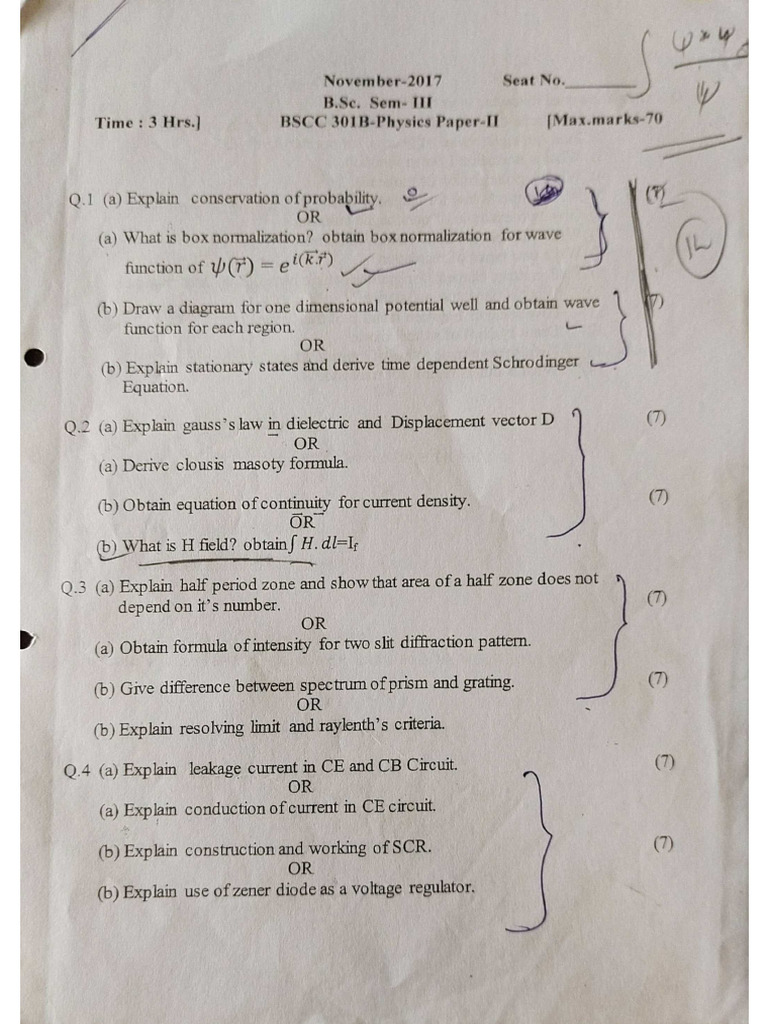 November-2017 Seat No.________
B.Sc. Sem- III
Time : 3 Hrs.] BSCC 301B-Physics Paper-II [Max.marks-70
Q.1 (a) Explain conservation of probability. (7)
OR
(a) What is box normalization? obtain box normalization for wave
function of ψ(r⃗) = e^{i(k⃗.r⃗)}
12
(b) Draw a diagram for one dimensional potential well and obtain wave (7)
function for each region.
OR
(b) Explain stationary states and derive time dependent Schrodinger
Equation.
Q.2 (a) Explain gauss's law in dielectric and Displacement vector D (7)
OR
(a) Derive clousis masoty formula.
(b) Obtain equation of continuity for current density. (7)
OR
(b) What is H field? obtain∫ H. dl=I_f
Q.3 (a) Explain half period zone and show that area of a half zone does not (7)
depend on it's number.
OR
(a) Obtain formula of intensity for two slit diffraction pattern.
(b) Give difference between spectrum of prism and grating. (7)
OR
(b) Explain resolving limit and raylenth's criteria.
Q.4 (a) Explain leakage current in CE and CB Circuit. (7)
OR
(a) Explain conduction of current in CE circuit.
(b) Explain construction and working of SCR. (7)
OR
(b) Explain use of zener diode as a voltage regulator.